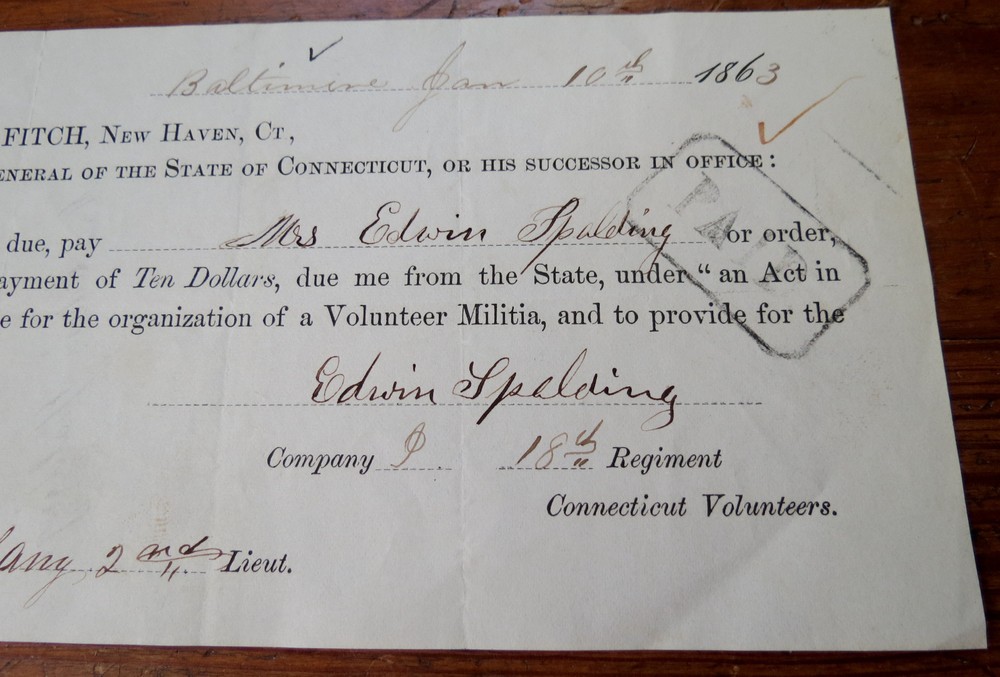 Baltimore Jan 10th 1863
FITCH, NEW HAVEN, CT,
ENERAL OF THE STATE OF CONNECTICUT, OR HIS SUCCESSOR IN OFFICE:
PAID
due, pay Mrs Edwin Spalding or order,
ayment of Ten Dollars, due me from the State, under "an Act in
e for the organization of a Volunteer Militia, and to provide for the
Edwin Spalding
Company 18th Regiment
Connecticut Volunteers.
2nd Lieut.